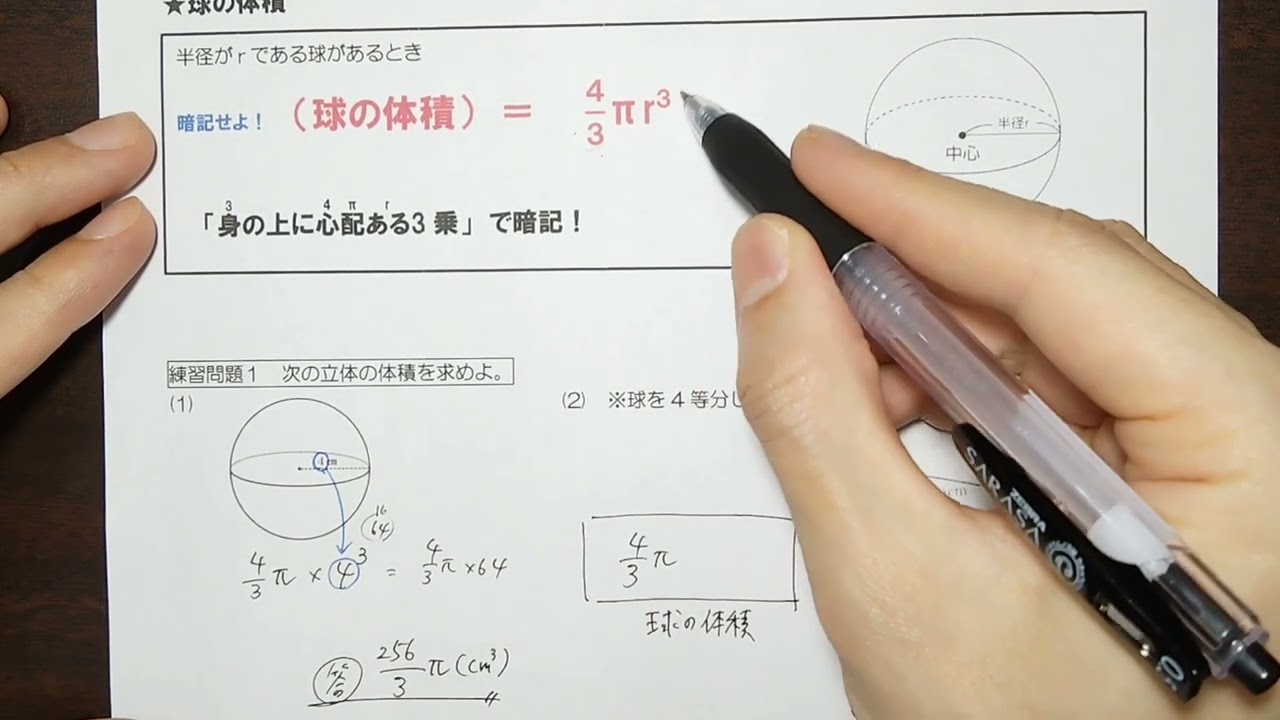 ★球の体積
半径がrである球があるとき
暗記せよ！ (球の体積) = 4/3 πr³
半径r
中心
3 4 π r
「身の上に心配ある3乗」で暗記！
練習問題1 次の立体の体積を求めよ。
(1)
(2) ※球を4等分し
4cm
cm
16
(64)
4/3 π × 4³ = 4/3 π×64
4/3 π
球の体積
答 256/3 π(cm³)
SARASA
ZEBRA